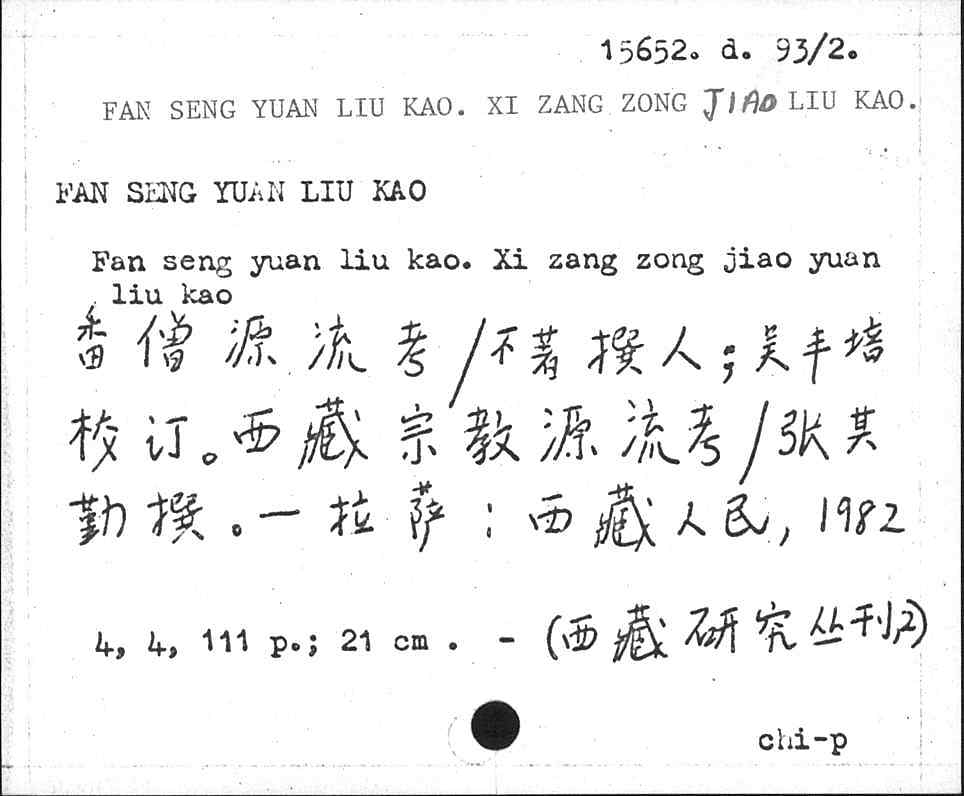 15652. d. 93/2.
FAN SENG YUAN LIU KAO. XI ZANG ZONG JIAO LIU KAO.
FAN SENG YUAN LIU KAO
Fan seng yuan liu kao. Xi zang zong jiao yuan
liu kao
番僧源流考/不著撰人;吴丰培
校订。西藏宗教源流考/张其
勤撰。一拉萨:西藏人民, 1982
4, 4, 111 p.; 21 cm . - (西藏研究丛刊,2)
chi-p